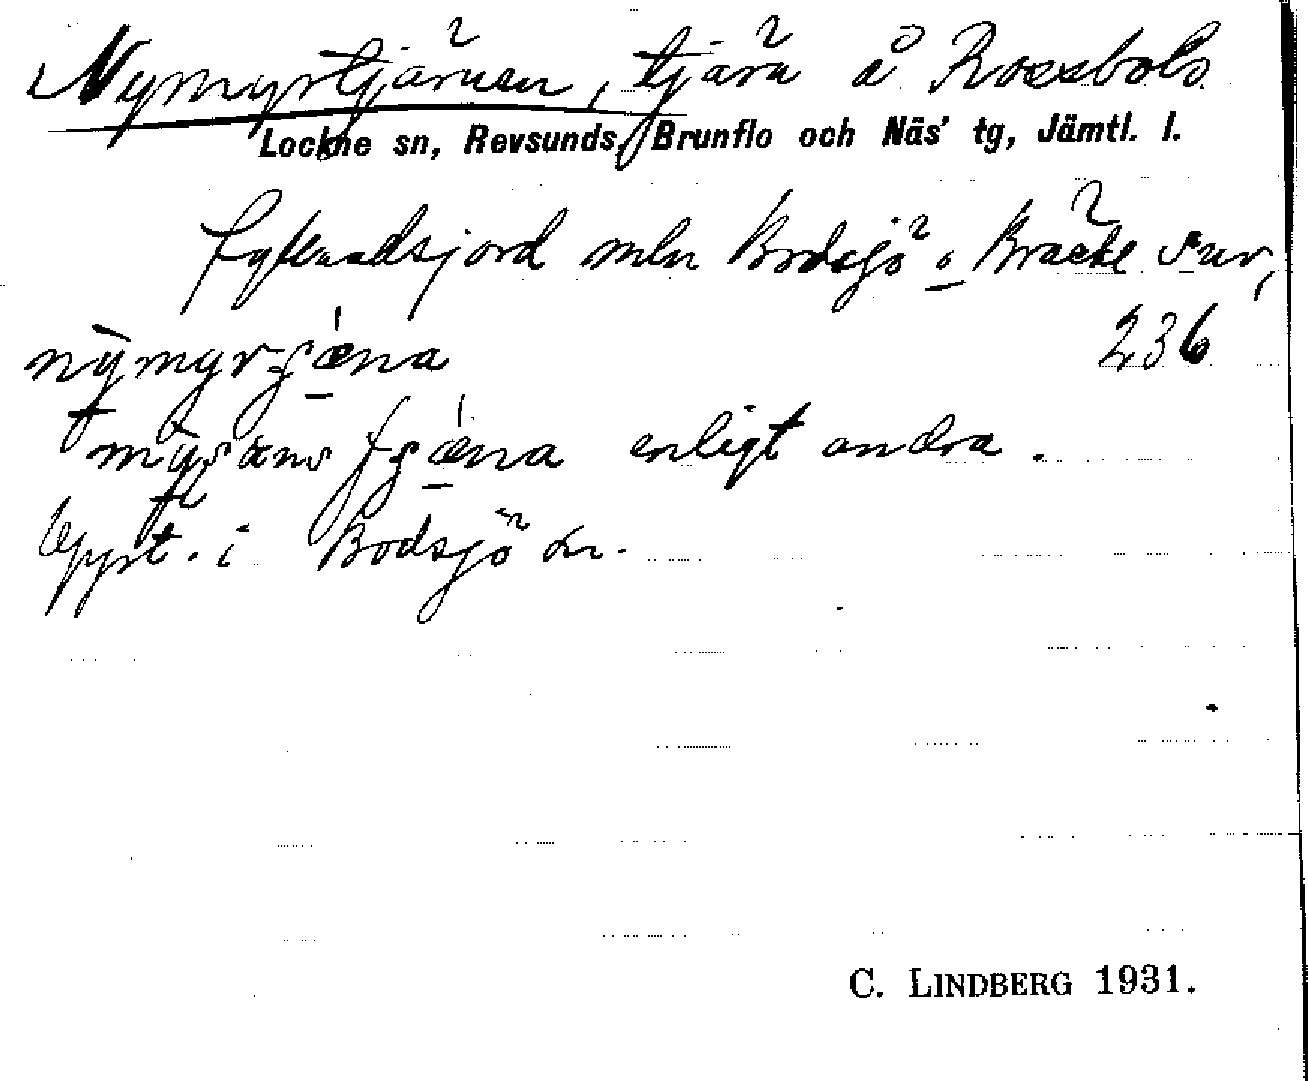 Nymyrtjärnen, tjärn å Rossbols
Lockne sn, Revsunds, Brunflo och Näs' tg, Jämtl. l.
fyllnadsjord mln Bodsjö o Bräcke snr,
236
enligt andra.
Uppt. i Bodsjö sn.
C. LINDBERG 1931.